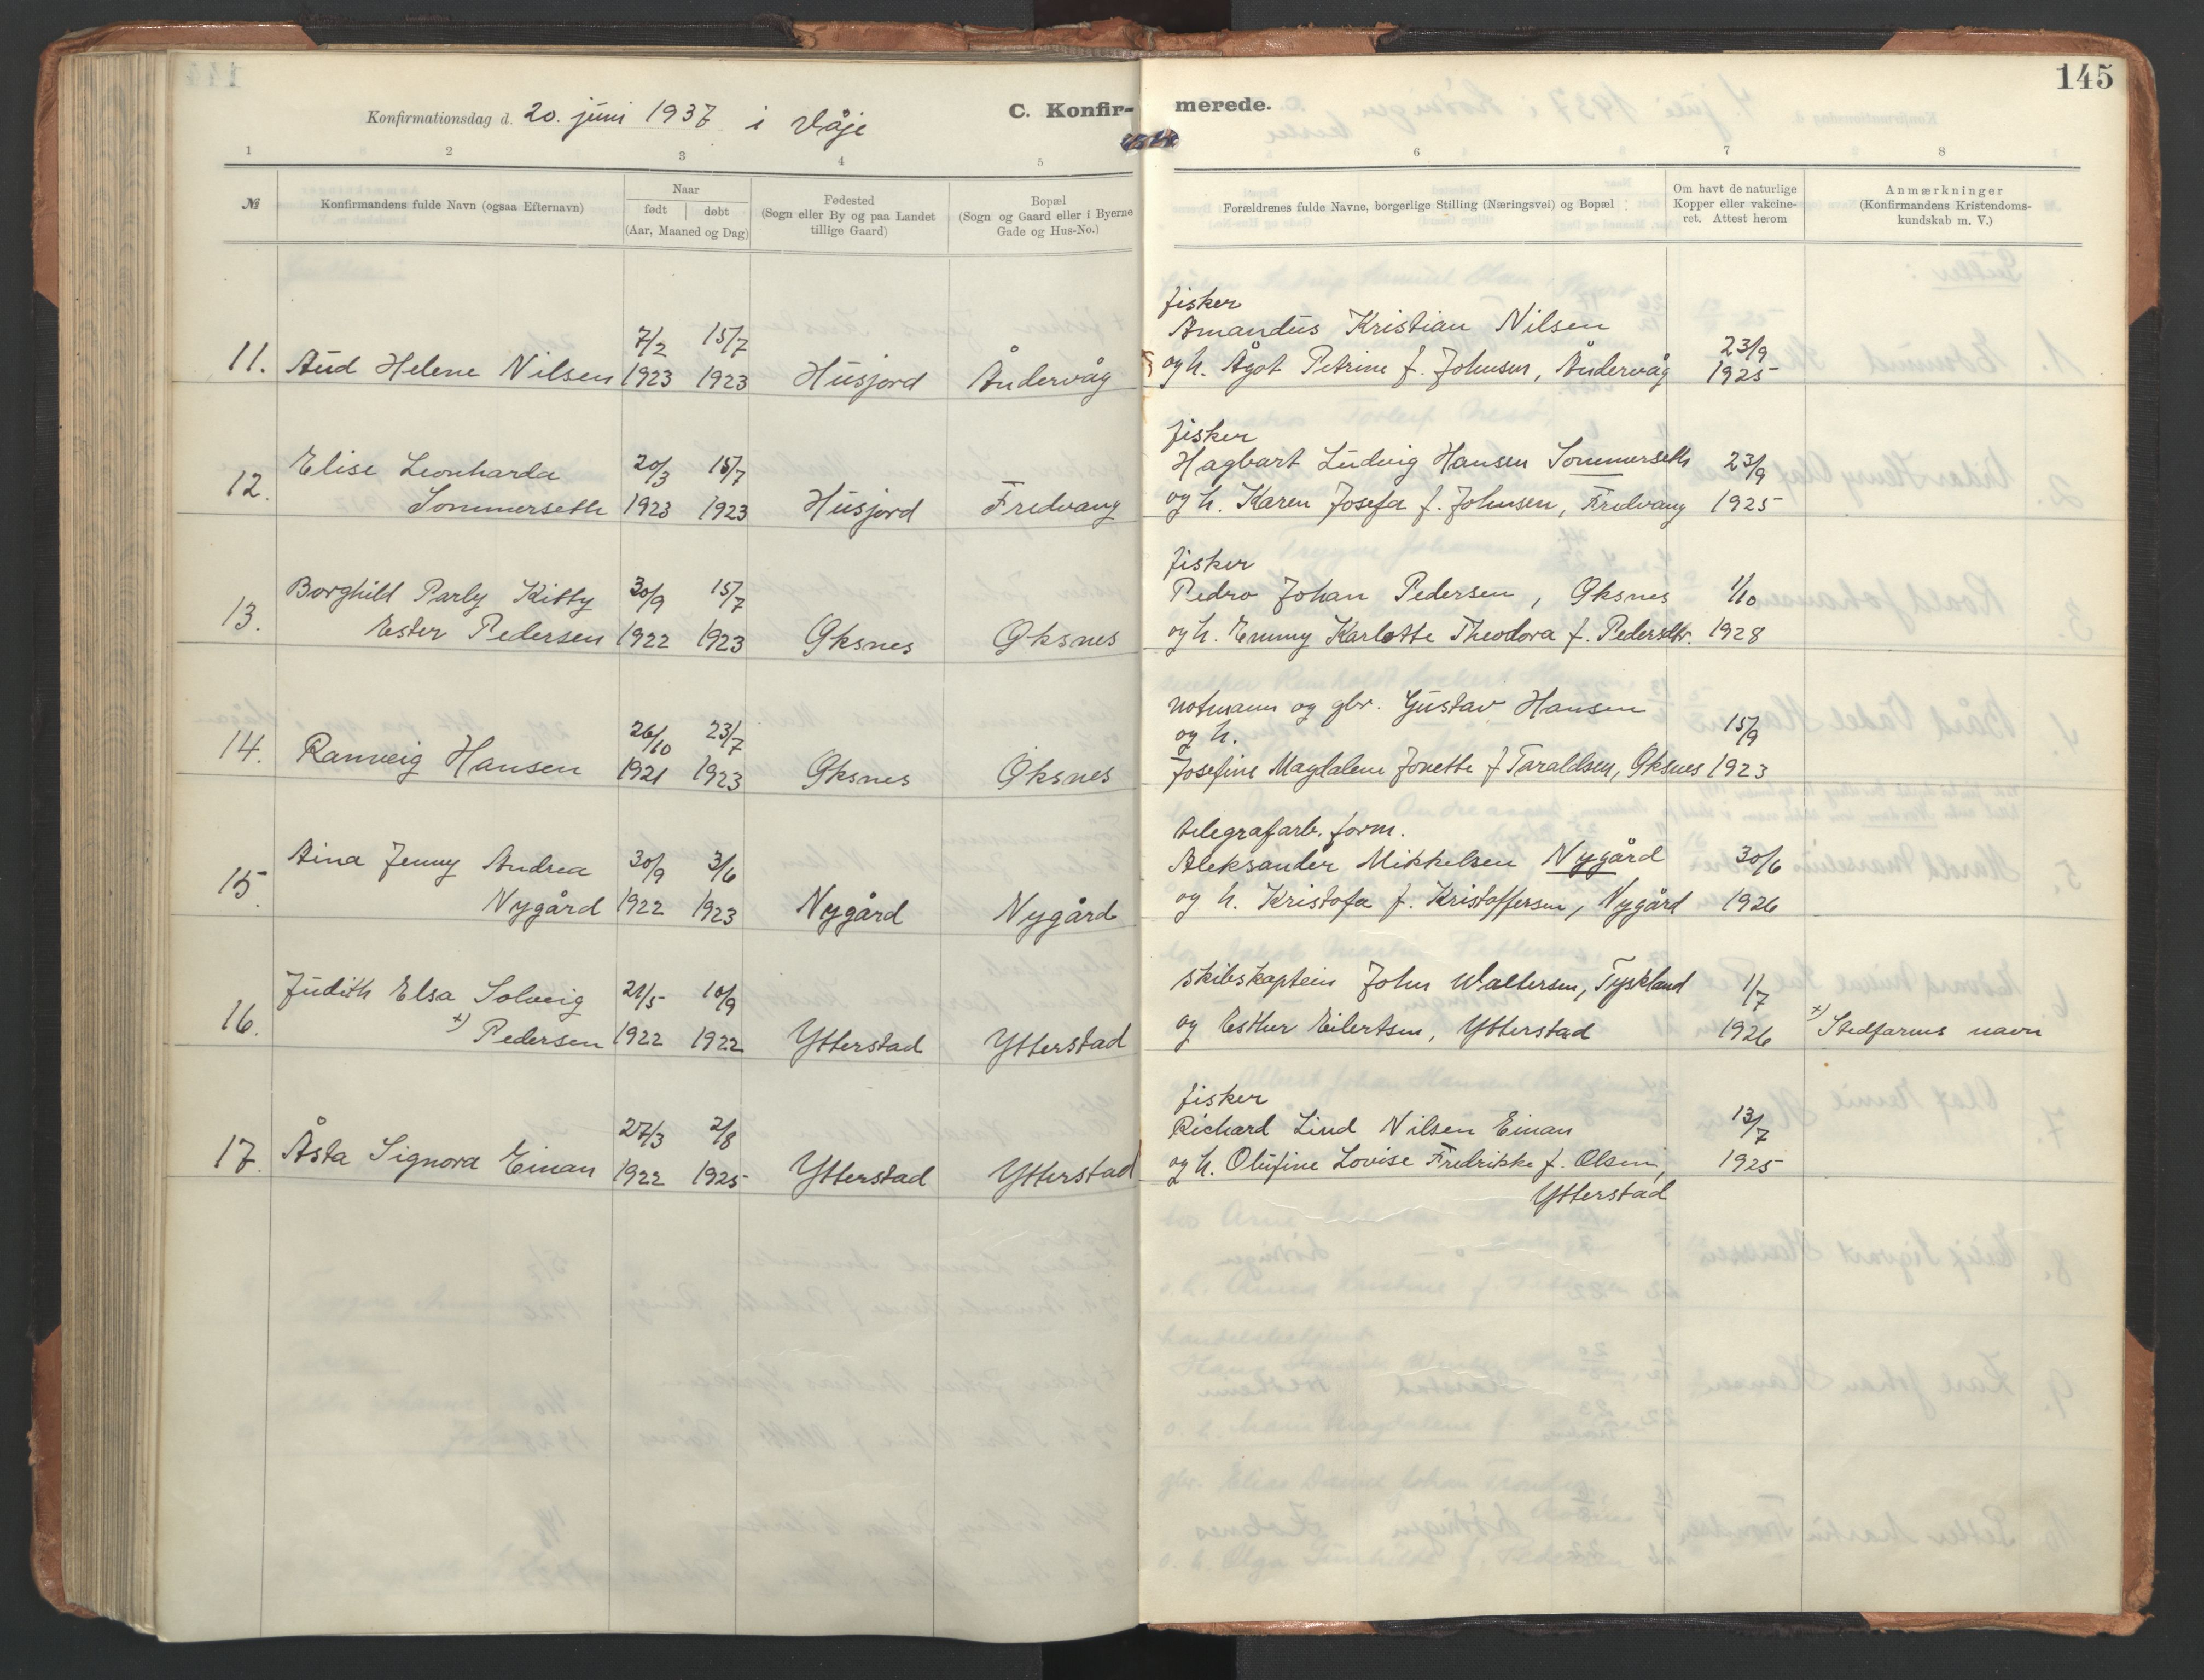 145
Konfirmationsdag d. 20. juni 1937 i Våje
C. Konfir- merede.
1 2 3 4 5 6 7 8
№
Konfirmandens fulde Navn (ogsaa Efternavn)
Naar
født døbt
(Aar, Maaned og Dag)
Fødested
(Sogn eller By og paa Landet
tillige Gaard)
Bopæl
(Sogn og Gaard eller i Byerne
Gade og Hus-No.)
Forældrenes fulde Navne, borgerlige Stilling (Næringsvei) og Bopæl
Om havt de naturlige
Kopper eller vakcine-
ret. Attest herom
Anmærkninger
(Konfirmandens Kristendoms-
kundskab m. V.)
fisker
7/2 15/7 Amandus Kristian Nilsen 23/9
11. Aud Helene Nilsen 1923 1923 Husjord Åndervåg og h. Ågot Petrine f. Johnsen, Åndervåg 1925
fisker
Elise Leonharda 20/3 15/7 Hagbart Ludvig Hansen Sommerseth 23/9
12. Sommerseth 1923 1923 Husjord Fredvang og h. Karen Josefa f. Johnsen, Fredvang 1925
fisker
Borghild Parly Kitty 30/9 15/7 Pedro Johan Pedersen, Øksnes 1/10
13. Ester Pedersen 1922 1923 Øksnes Øksnes og h. Emmy Karlotte Theodora f. Pedersdtr. 1928
notmann og gbr. Gustav Hansen
26/10 23/7 og h. 15/9
14. Ranveig Hansen 1921 1923 Øksnes Øksnes Josefine Magdalene Jonette f Taraldsen, Øksnes 1923
telegrafarb. form.
Aina Jenny Andrea 30/9 3/6 Aleksander Mikkelsen Nygård 30/6
15. Nygård 1922 1923 Nygård Nygård og h. Kristofa f. Kristoffersen, Nygård 1926
Judith Elsa Solveig 21/5 10/9 skibskaptein John Waltersen, Tyskland 1/7
16. x) Pedersen 1922 1922 Ytterstad Ytterstad og Esther Eilertsen, Ytterstad 1926 x) Stedfarens navn
fisker
27/3 2/8 Richard Lind Nilsen Einan 13/7
17. Åsta Signora Einan 1922 1925 Ytterstad Ytterstad og h. Olufine Lovise Fredrikke f. Olsen, 1925
Ytterstad